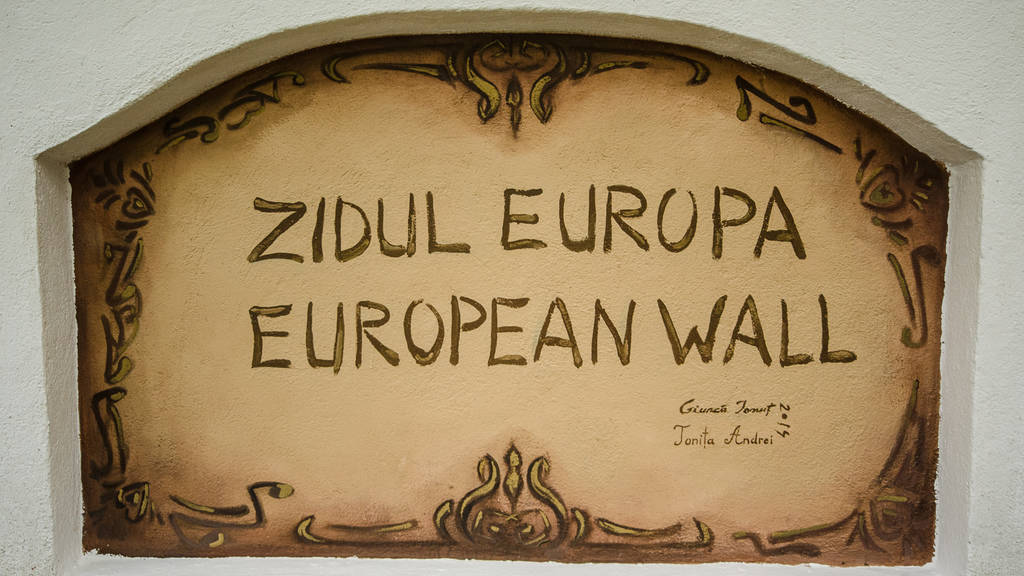 ZIDUL EUROPA
EUROPEAN WALL
Giurcă Ionuț
Toniţa Andrei
2014